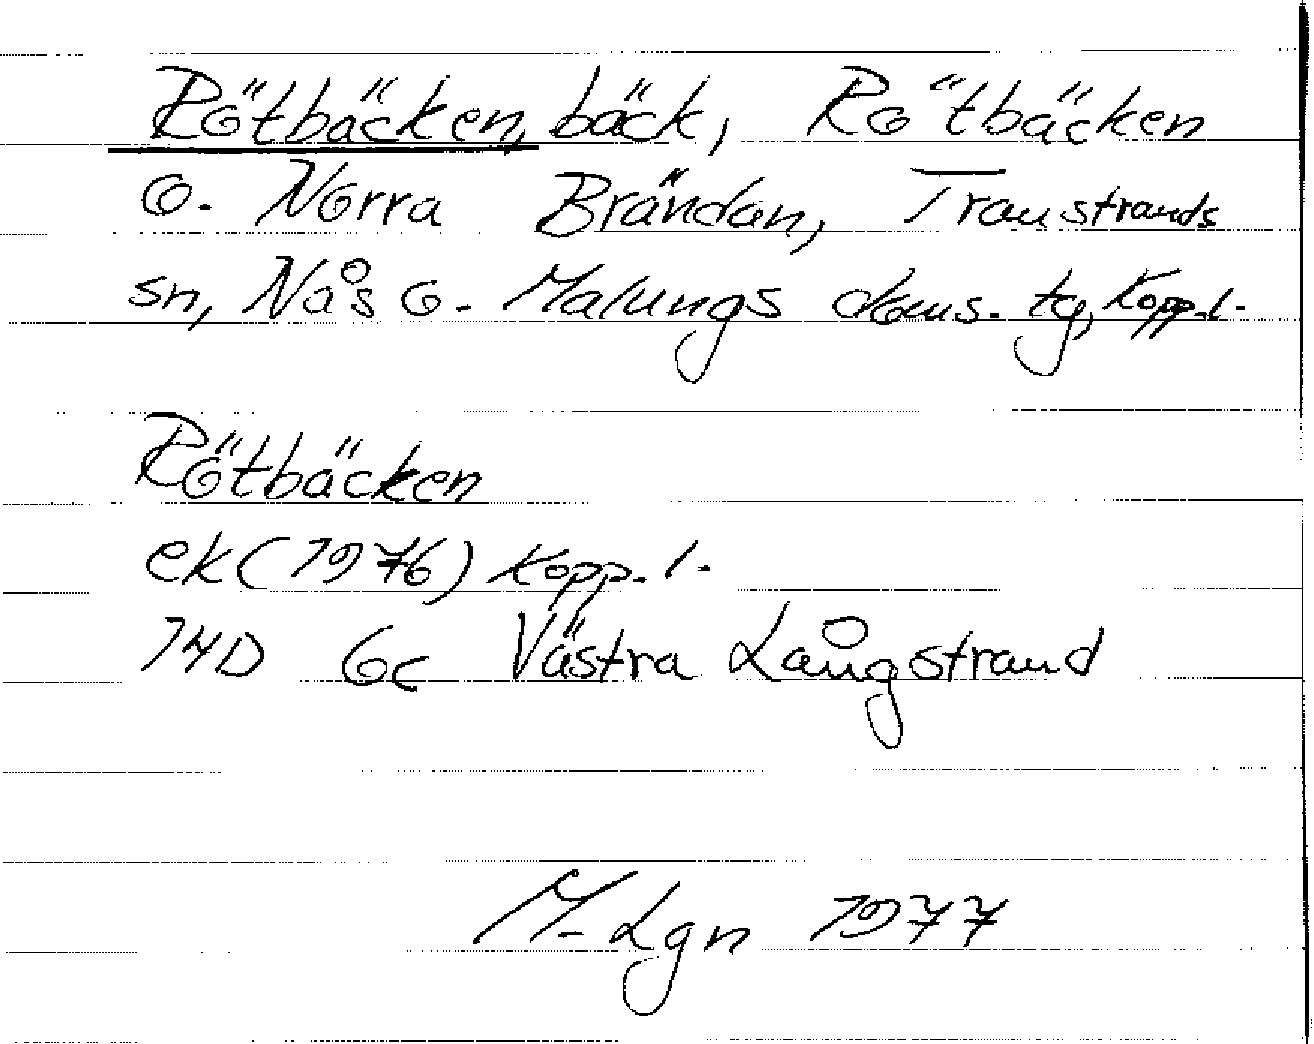 Rötbäcken, bäck, Rötbäcken
o. Norra Brändan, Transtrands
sn, Nås o. Malungs doms. tg, Kopp. l.
Rötbäcken
ek (1976) Kopp. l.
14D 6c Västra Långstrand
M-Lgn 1977